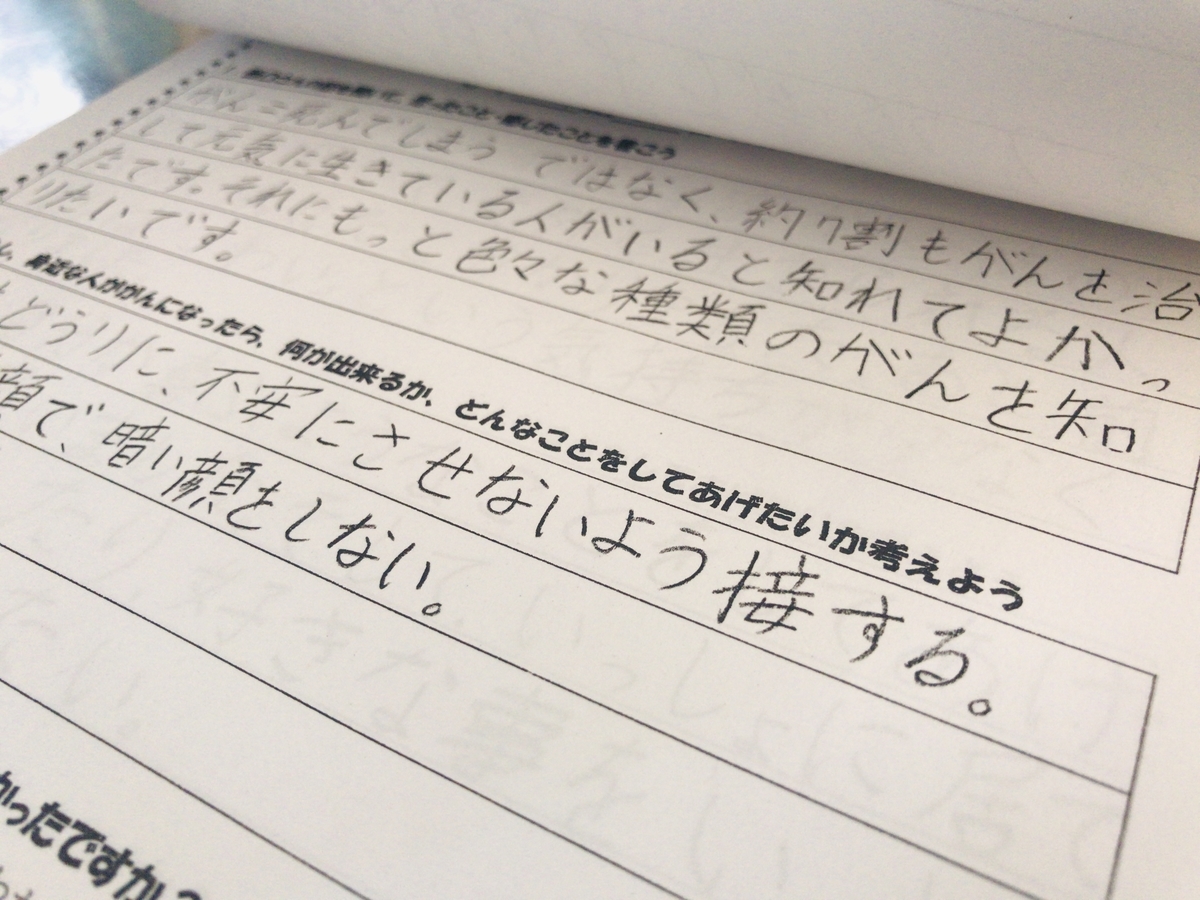 て、思ったこと・感じたことを書こう
がんで死んでしまう ではなく、約7割もがんを治
して元気に生きている人がいると知れてよかっ
たです。それにもっと色々な種類のがんを知
りたいです。
身近な人ががんになったら、何が出来るか、どんなことをしてあげたいか考えよう
どうりに、不安にさせないよう接する。
顔で、暗い顔をしない。
かったですか?